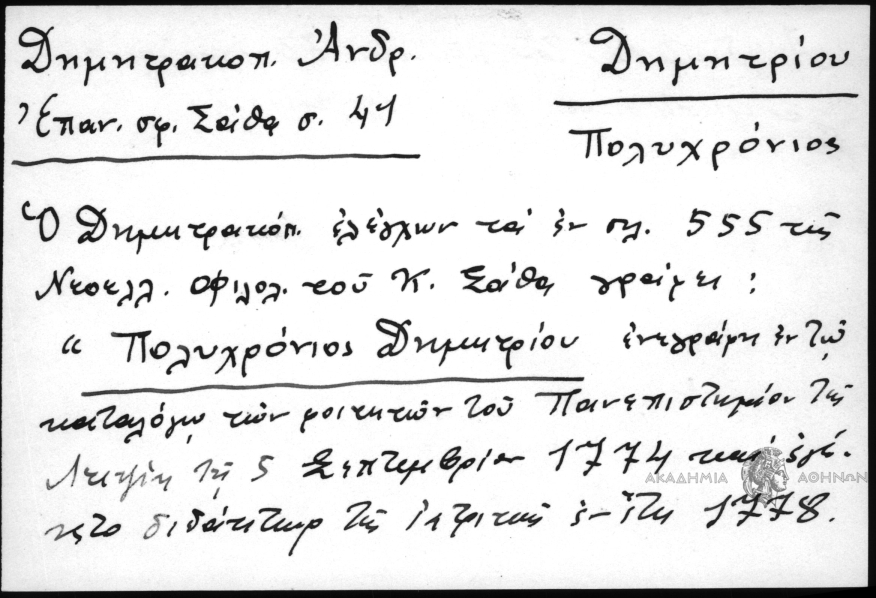 Δημητρακοπ. Ἀνδρ.
Ἐπαν. σφ. Σάθα σ. 41
Δημητρίου
Πολυχρόνιος
Ὁ Δημητρακόπ. ἐλέγχων τὰ ἐν σελ. 555 τῆς
Νεοελλ. Φιλολ. τοῦ Κ. Σάθα γράφει :
“ Πολυχρόνιος Δημητρίου ἐνεγράφη ἐν τῷ
καταλόγῳ τῶν φοιτητῶν τοῦ Πανεπιστημίου τῆς
Λειψίας τῇ 5 Σεπτεμβρίου 1774 καὶ ἐγέ-
νετο διδάκτωρ τῆς ἰατρικῆς ἐν ἔτει 1778.
ΑΚΑΔΗΜΙΑ ΑΘΗΝΩΝ